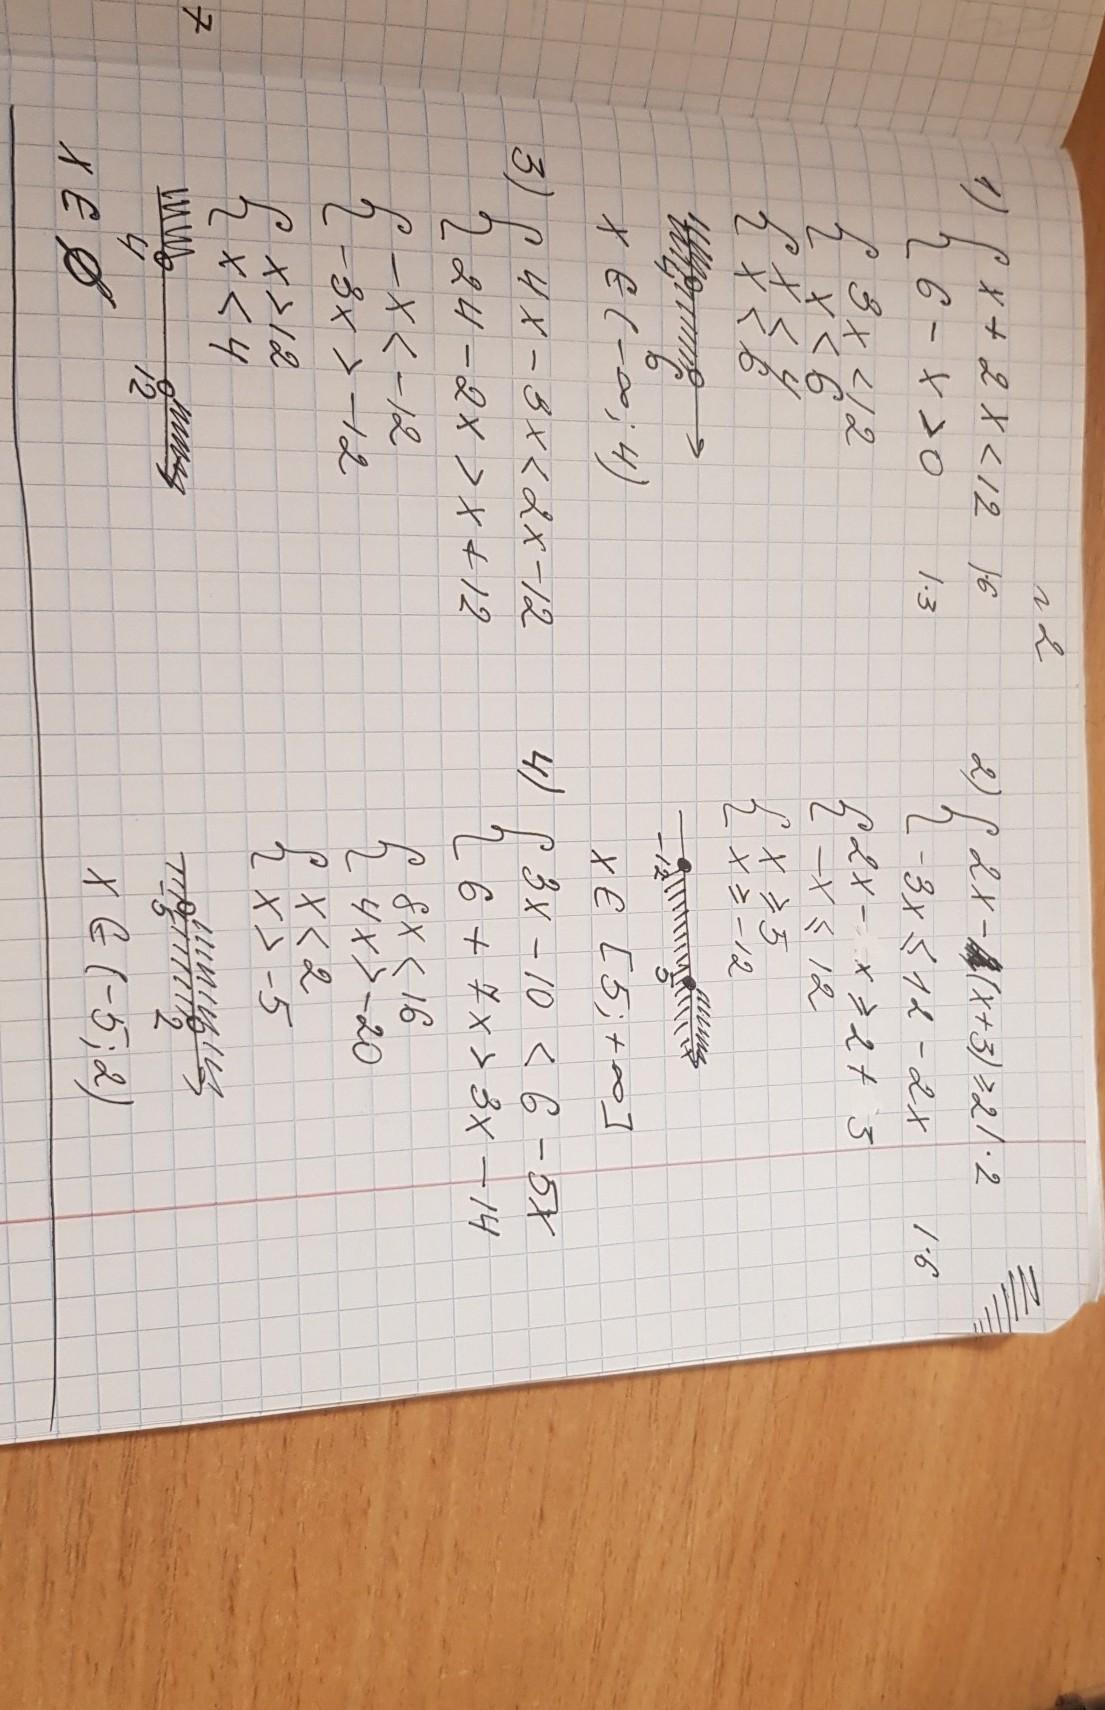 n 2
1) { x + 2x < 12 |·6
{ 6 - x > 0 |·3
{ 3x < 12
{ x < 6
{ x < 4
{ x < 6
4 6
x ∈ (-∞; 4)
2) { 2x - (x+3) ≥ 2 |·2
{ -3x ≤ 12 - 2x |·6
{ 2x - x ≥ 2 + 3
{ -x ≤ 12
{ x ≥ 5
{ x ≥ -12
-12 5
x ∈ [5; +∞]
3) { 4x - 3x < 2x - 12
{ 24 - 2x > x + 12
{ -x < -12
{ -3x > -12
{ x > 12
{ x < 4
4 12
x ∈ Ø
4) { 3x - 10 < 6 - 5x
{ 6 + 7x > 3x - 14
{ 8x < 16
{ 4x > -20
{ x < 2
{ x > -5
-5 2
x ∈ (-5; 2)
7